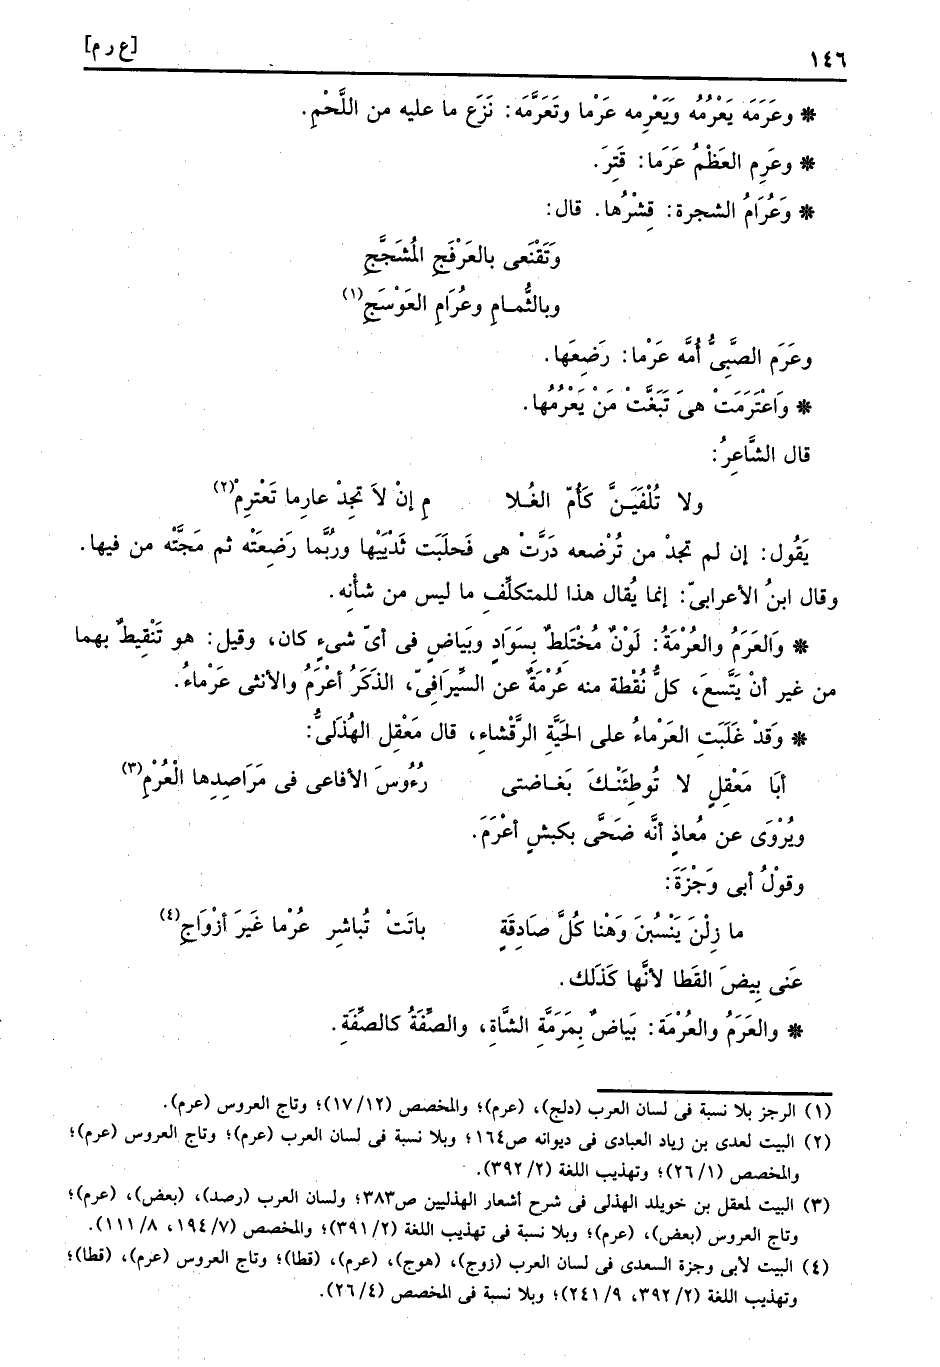 ١٤٦ [ع ر م]
* وعَرَمَه يَعْرُمُه ويَعْرِمه عَرْما وتَعَرَّمَه: نَزَع ما عليه من اللَّحْمِ.
* وعَرِم العَظْمُ عَرَما: قَتِرَ.
* وعُرَامُ الشجرة: قِشْرُها. قال:
وَتَقْنَعى بالعَرْفَجِ المُشَجَّجِ
وبالثُّمـامِ وعُرَامِ العَوْسَجِ(١)
وعَرَم الصَّبىُّ أُمَّه عَرْما: رَضِعَها.
* وَاعْتَرَمَتْ هىَ تَبَغَّتْ مَنْ يَعْرُمُها.
قال الشَّاعرُ:
ولا تُلْفَيَـنَّ كَأُمّ الغُـلا مِ إنْ لاَ تجِدْ عارِما تَعْترِمْ(٢)
يَقُول: إن لم تجدْ من تُرْضعه دَرَّتْ هى فَحلَبَت ثَدْيَيْها ورُبَّما رَضِعَتْه ثم مَجَّتْه من فيها.
وقال ابنُ الأعرابىّ: إنما يُقال هذا للمتكلِّفِ ما ليس من شأْنِه.
* والعَرَمُ والعُرْمَةُ: لَوْنٌ مُخْتَلِطٌ بِسَوَادٍ وبَياضٍ فى أىّ شىءٍ كان، وقيل: هو تَنْقِيطٌ بهما
من غير أنْ يَتَّسعَ، كلُّ نُقْطة منه عُرْمَةٌ عن السِّيرَافىّ، الذكَرُ أعْرَمُ والأنثى عَرْماءُ.
* وَقدْ غَلَبَتِ العَرْماءُ على الحَيَّةِ الرَّقْشاءِ، قال مَعْقِل الهُذَلىُّ:
أبَا مَعْقِلٍ لا تُوطِئَنْـكَ بَغـاضتى رُءُوسَ الأفاعى فى مَرَاصِدِها الْعُرْمِ(٣)
ويُرْوَى عن مُعاذٍ أنَّه ضَحَّى بكبشٍ أعْرَمَ.
وقوْلُ أبى وَجْزَةَ:
ما زِلْنَ يَنْسُبنَ وَهْنا كُلَّ صَادِقَةٍ باتَتْ تُباشِر عُرْما غَيرَ أزْوَاجِ(٤)
عَنى بِيضَ القَطا لأنَّها كَذَلك.
* والعَرَمُ والعُرْمَة: بَياضٌ بِمَرَمَّةِ الشَّاةِ، والصِّفَةُ كالصِّفَةِ.
(١) الرجز بلا نسبة فى لسان العرب (دلج)، (عرم)؛ والمخصص (١٧/١٢)؛ وتاج العروس (عرم).
(٢) البيت لعدى بن زياد العبادى فى ديوانه ص١٦٤؛ وبلا نسبة فى لسان العرب (عرم)؛ وتاج العروس (عرم)؛
والمخصص (٢٦/١)؛ وتهذيب اللغة (٣٩٢/٢).
(٣) البيت لمعقل بن خويلد الهذلى فى شرح أشعار الهذليين ص٣٨٣؛ ولسان العرب (رصد)، (بعض)، (عرم)؛
وتاج العروس (بعض)، (عرم)؛ وبلا نسبة فى تهذيب اللغة (٣٩١/٢)؛ والمخصص (١٩٤/٧، ١١١/٨).
(٤) البيت لأبى وجزة السعدى فى لسان العرب (زوج)، (هوج)، (عرم)، (قطا)؛ وتاج العروس (عرم)، (قطا)؛
وتهذيب اللغة (٣٩٢/٢، ٢٤١/٩)؛ وبلا نسبة فى المخصص (٢٦/٤).